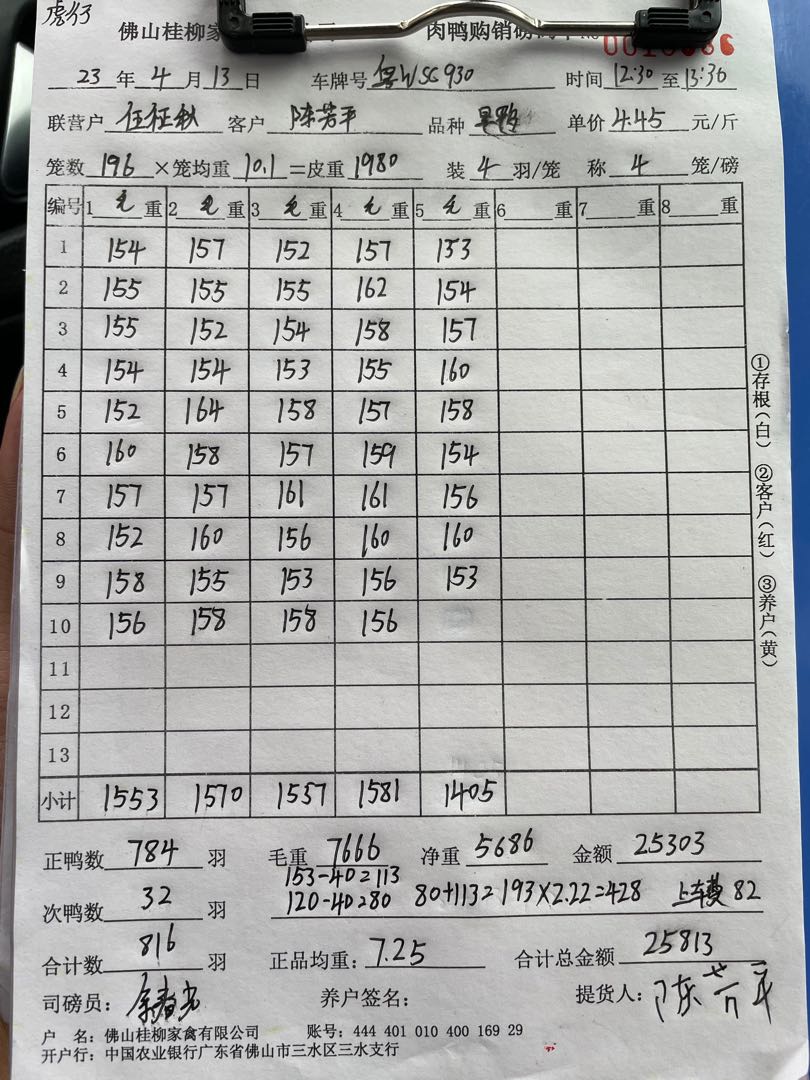 佛山桂柳家 肉鸭购销磅
23 年 4 月 13 日 车牌号 粤WSG930 时间 12:30 至 13:30
联营户 伍征秋 客户 陈芳平 品种 单价 4.45 元/斤
笼数 196 ×笼均重 10.1 =皮重 1980 装 4 羽/笼 称 4 笼/磅
编号 1 毛 重 2 毛 重 3 毛 重 4 毛 重 5 毛 重 6 重 7 重 8 重
1 154 157 152 157 153
2 155 155 155 162 154
3 155 152 154 158 157
4 154 154 153 155 160
5 152 164 158 157 158
6 160 158 157 159 154
7 157 157 161 161 156
8 152 160 156 160 160
9 158 155 153 156 153
10 156 158 158 156
11
12
13
小计 1553 1570 1557 1581 1405
①存根(白) ②客户(红) ③养户(黄)
正鸭数 784 羽 毛重 7666 净重 5686 金额 25303
153-40=113
次鸭数 32 羽 120-40=80 80+113=193×2.22=428 上车费 82
合计数 816 羽 正品均重: 7.25 合计总金额 25813
司磅员: 养户签名: 提货人: 陈芳平
户 名: 佛山桂柳家禽有限公司 账号: 444 401 010 400 169 29
开户行: 中国农业银行广东省佛山市三水区三水支行